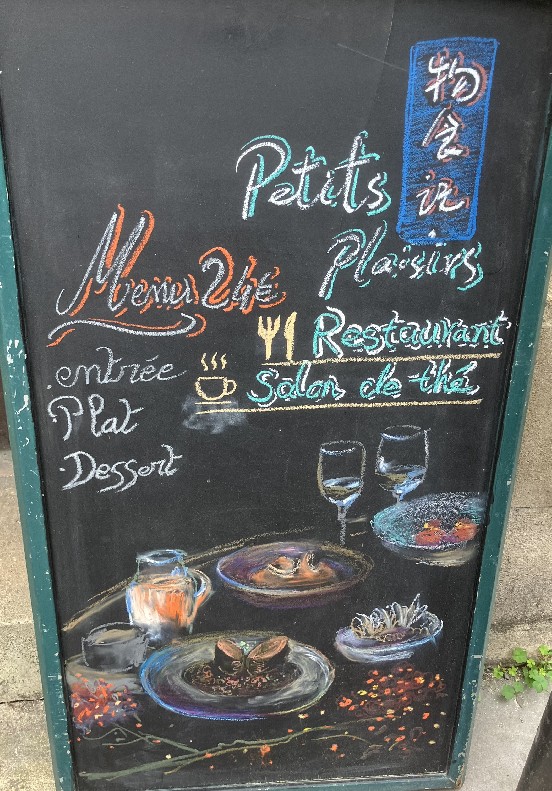 物食记
Petits
Plaisirs
Menu 24€
Restaurant
Salon de thé
.entrée
.Plat
.Dessert